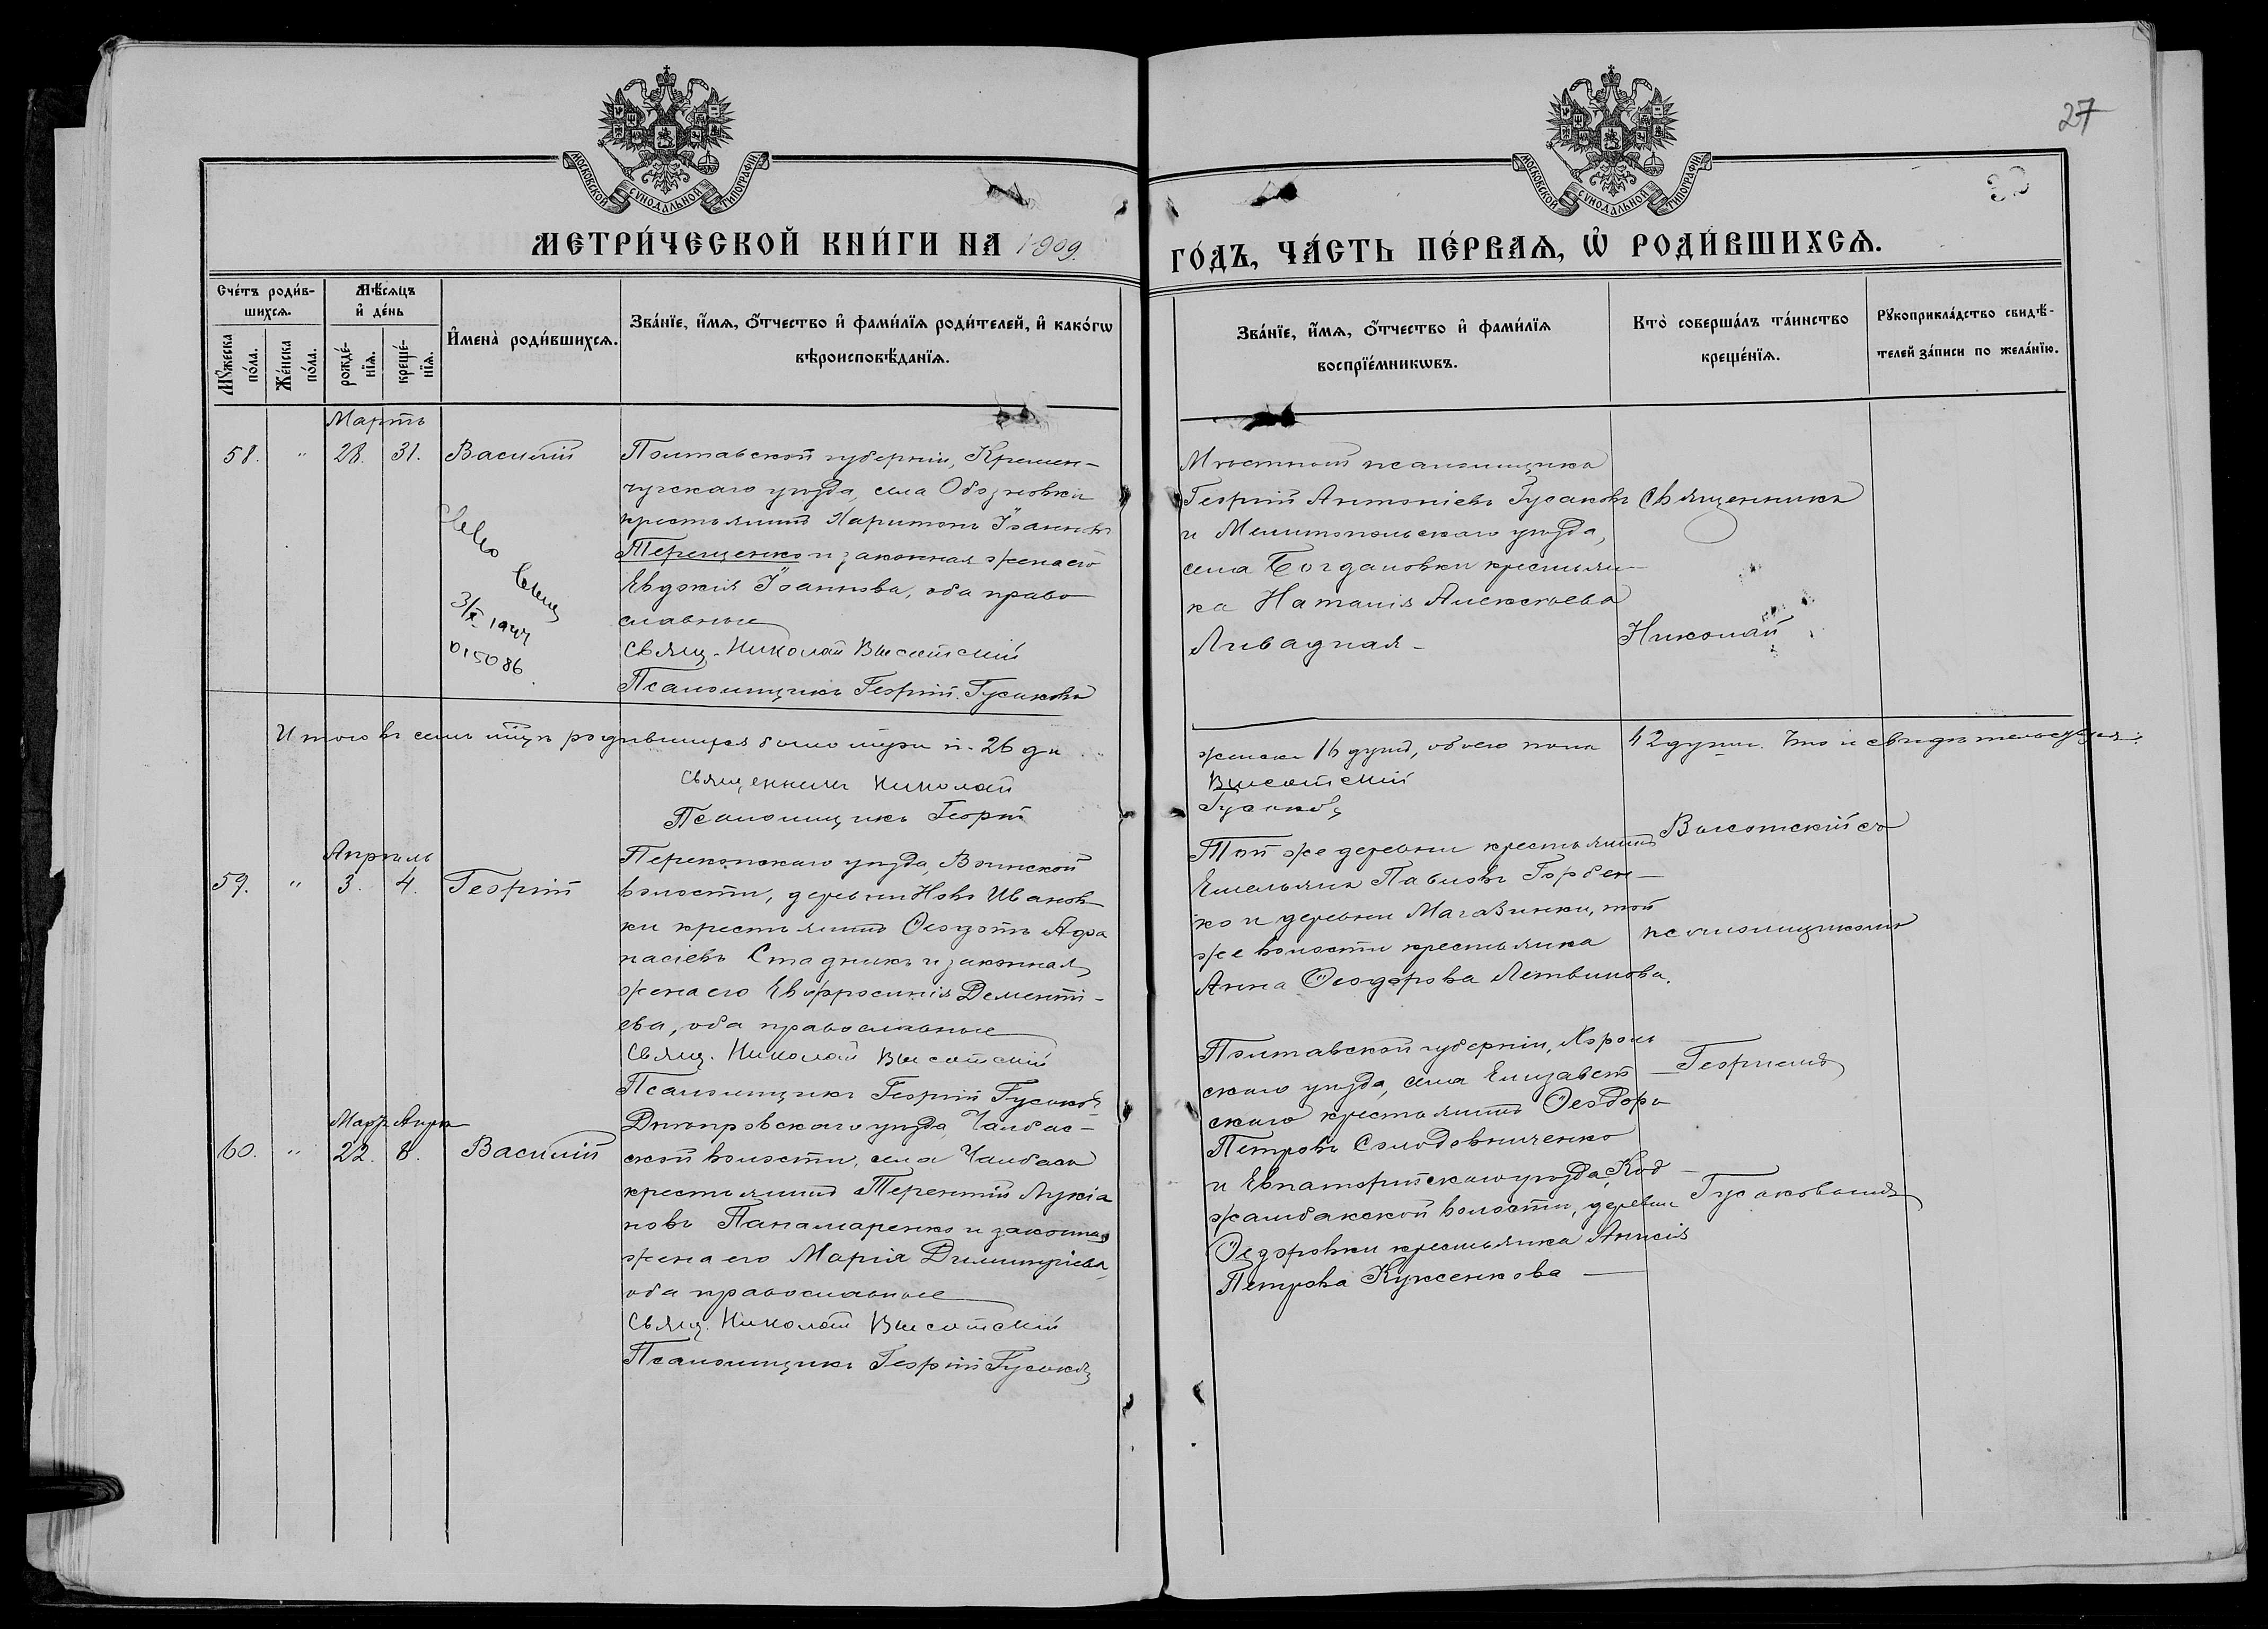 27
32
МОСКОВСКОЙ СѴНОДАЛЬНОЙ ТИПОГРАФІИ
МОСКОВСКОЙ СѴНОДАЛЬНОЙ ТИПОГРАФІИ
МЕТРИ́ЧЕСКОЙ КНИ́ГИ НА 1909
ГО́ДЪ, ЧА́СТЬ ПЕ́РВАѦ, Ѽ РОДИ́ВШИХСѦ.
Сче́тъ роди́в-
шихсѧ.
Мѣ́сѧцъ
и҆ де́нь
Мꙋ́жеска
по́ла.
Же́нска
по́ла.
рожде́-
нїѧ.
креще́-
нїѧ.
И҆мена̀ роди́вшихсѧ.
Зва́нїе, и҆́мѧ, ѻ҆́тчество и҆ фами́лїѧ роди́телей, и҆ како́гѡ
вѣроисповѣ́данїѧ.
Зва́нїе, и҆́мѧ, ѻ҆́тчество и҆ фами́лїѧ
воспрїе́мникѡвъ.
Кто̀ соверша́лъ та́инство
креще́нїѧ.
Рꙋкоприкла́дство свидѣ́-
телей за́писи по жела́нїю.
Мартъ
58. " 28. 31. Василій
Полтавской губерніи, Кремен-
чугскаго уѣзда, села Обозновки
крестьянинъ Харитонъ Іоанновъ
Терещенко и законная жена его
Евдокія Іоаннова, оба право
славные
Свящ. Николай Высотскій
Псаломщикъ Георгій Гусаковъ
3/X 1944
015086
Мѣстный псаломщикъ
Георгій Антоніевъ Гусаковъ
и Мелитопольскаго уѣзда,
села Богдановки крестьян-
ка Наталія Алексѣева
Ливадная
Священникъ
Николай
Итого въ семъ мцѣ родившихся было муж. п. 26 ди
женска 16 душъ, обоего пола 42 души. Что и свидѣтельствуемъ:
Священникъ Николай
Высотскій
Псаломщикъ Георгій
Гусаковъ
Апрѣль
59. " 3. 4. Георгій
Перекопскаго уѣзда, Воинской
волости, деревни Ново Иванов
ки крестьянинъ Ѳеодотъ Афа
насіевъ Стадникъ и законная
жена его Евфросинія Дементі-
ева, оба православные
Свящ. Николай Высотскій
Псаломщикъ Георгій Гусаковъ
Той же деревни крестьянинъ
Емельянъ Павловъ Горбен-
ко и деревни Магазинки, той
же волости крестьянка
Анна Ѳеодорова Летвинова.
Высотскій съ
псаломщикомъ
Март. Апрѣл
60. " 22. 8. Василій
Днѣпровскаго уѣзда, Чалбас-
ской волости, села Чалбасы
крестьянинъ Терентій Лукіа
новъ Панамаренко и законная
жена его Марія Димитріева,
оба православные
Свящ. Николай Высотскій
Псаломщикъ Георгій Гусаковъ
Полтавской губерніи, Хороль
скаго уѣзда, села Елизавет
скаго крестьянинъ Ѳеодоръ
Петровъ Солодовниченко
и Евпаторійскаго уѣзда, Код
жамбакской волости, деревни
Ѳедоровки крестьянка Анисія
Петрова Куксенкова
Георгіемъ
Гусаковымъ